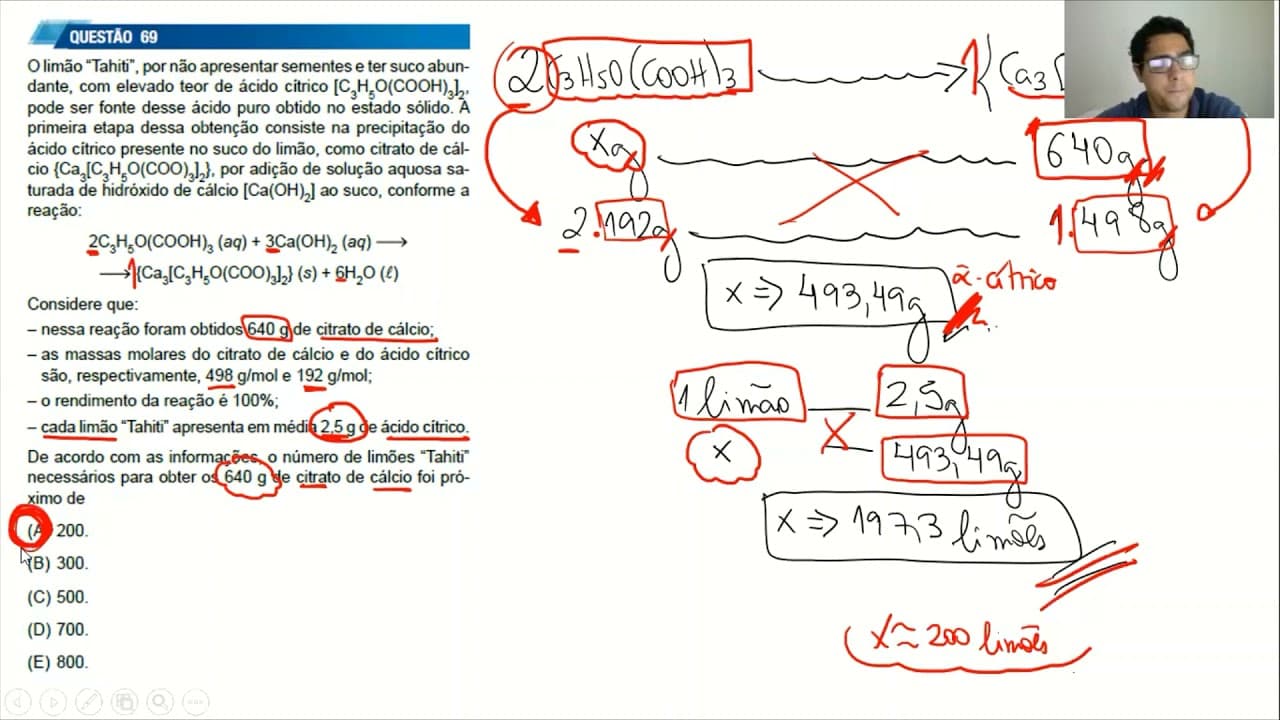 QUESTÃO 69
O limão “Tahiti”, por não apresentar sementes e ter suco abun-
dante, com elevado teor de ácido cítrico [C₃H₅O(COOH)₃]₂,
pode ser fonte desse ácido puro obtido no estado sólido. A
primeira etapa dessa obtenção consiste na precipitação do
ácido cítrico presente no suco do limão, como citrato de cál-
cio {Ca₃[C₃H₅O(COO)₃]₂}, por adição de solução aquosa sa-
turada de hidróxido de cálcio [Ca(OH)₂] ao suco, conforme a
reação:
2C₃H₅O(COOH)₃ (aq) + 3Ca(OH)₂ (aq) ⟶
⟶ 1{Ca₃[C₃H₅O(COO)₃]₂} (s) + 6H₂O (ℓ)
Considere que:
– nessa reação foram obtidos 640 g de citrato de cálcio;
– as massas molares do citrato de cálcio e do ácido cítrico
são, respectivamente, 498 g/mol e 192 g/mol;
– o rendimento da reação é 100%;
– cada limão “Tahiti” apresenta em média 2,5 g de ácido cítrico.
De acordo com as informações, o número de limões “Tahiti”
necessários para obter os 640 g de citrato de cálcio foi pró-
ximo de
(A) 200.
(B) 300.
(C) 500.
(D) 700.
(E) 800.
2 C₃H₅O(COOH)₃ ⟶ 1{Ca₃[
xg 640g
2.192g 1.498g
x ⇒ 493,49g
á-cítrico
1 limão 2,5g
x 493,49g
x ⇒ 197,3 limões
x ≈ 200 limões